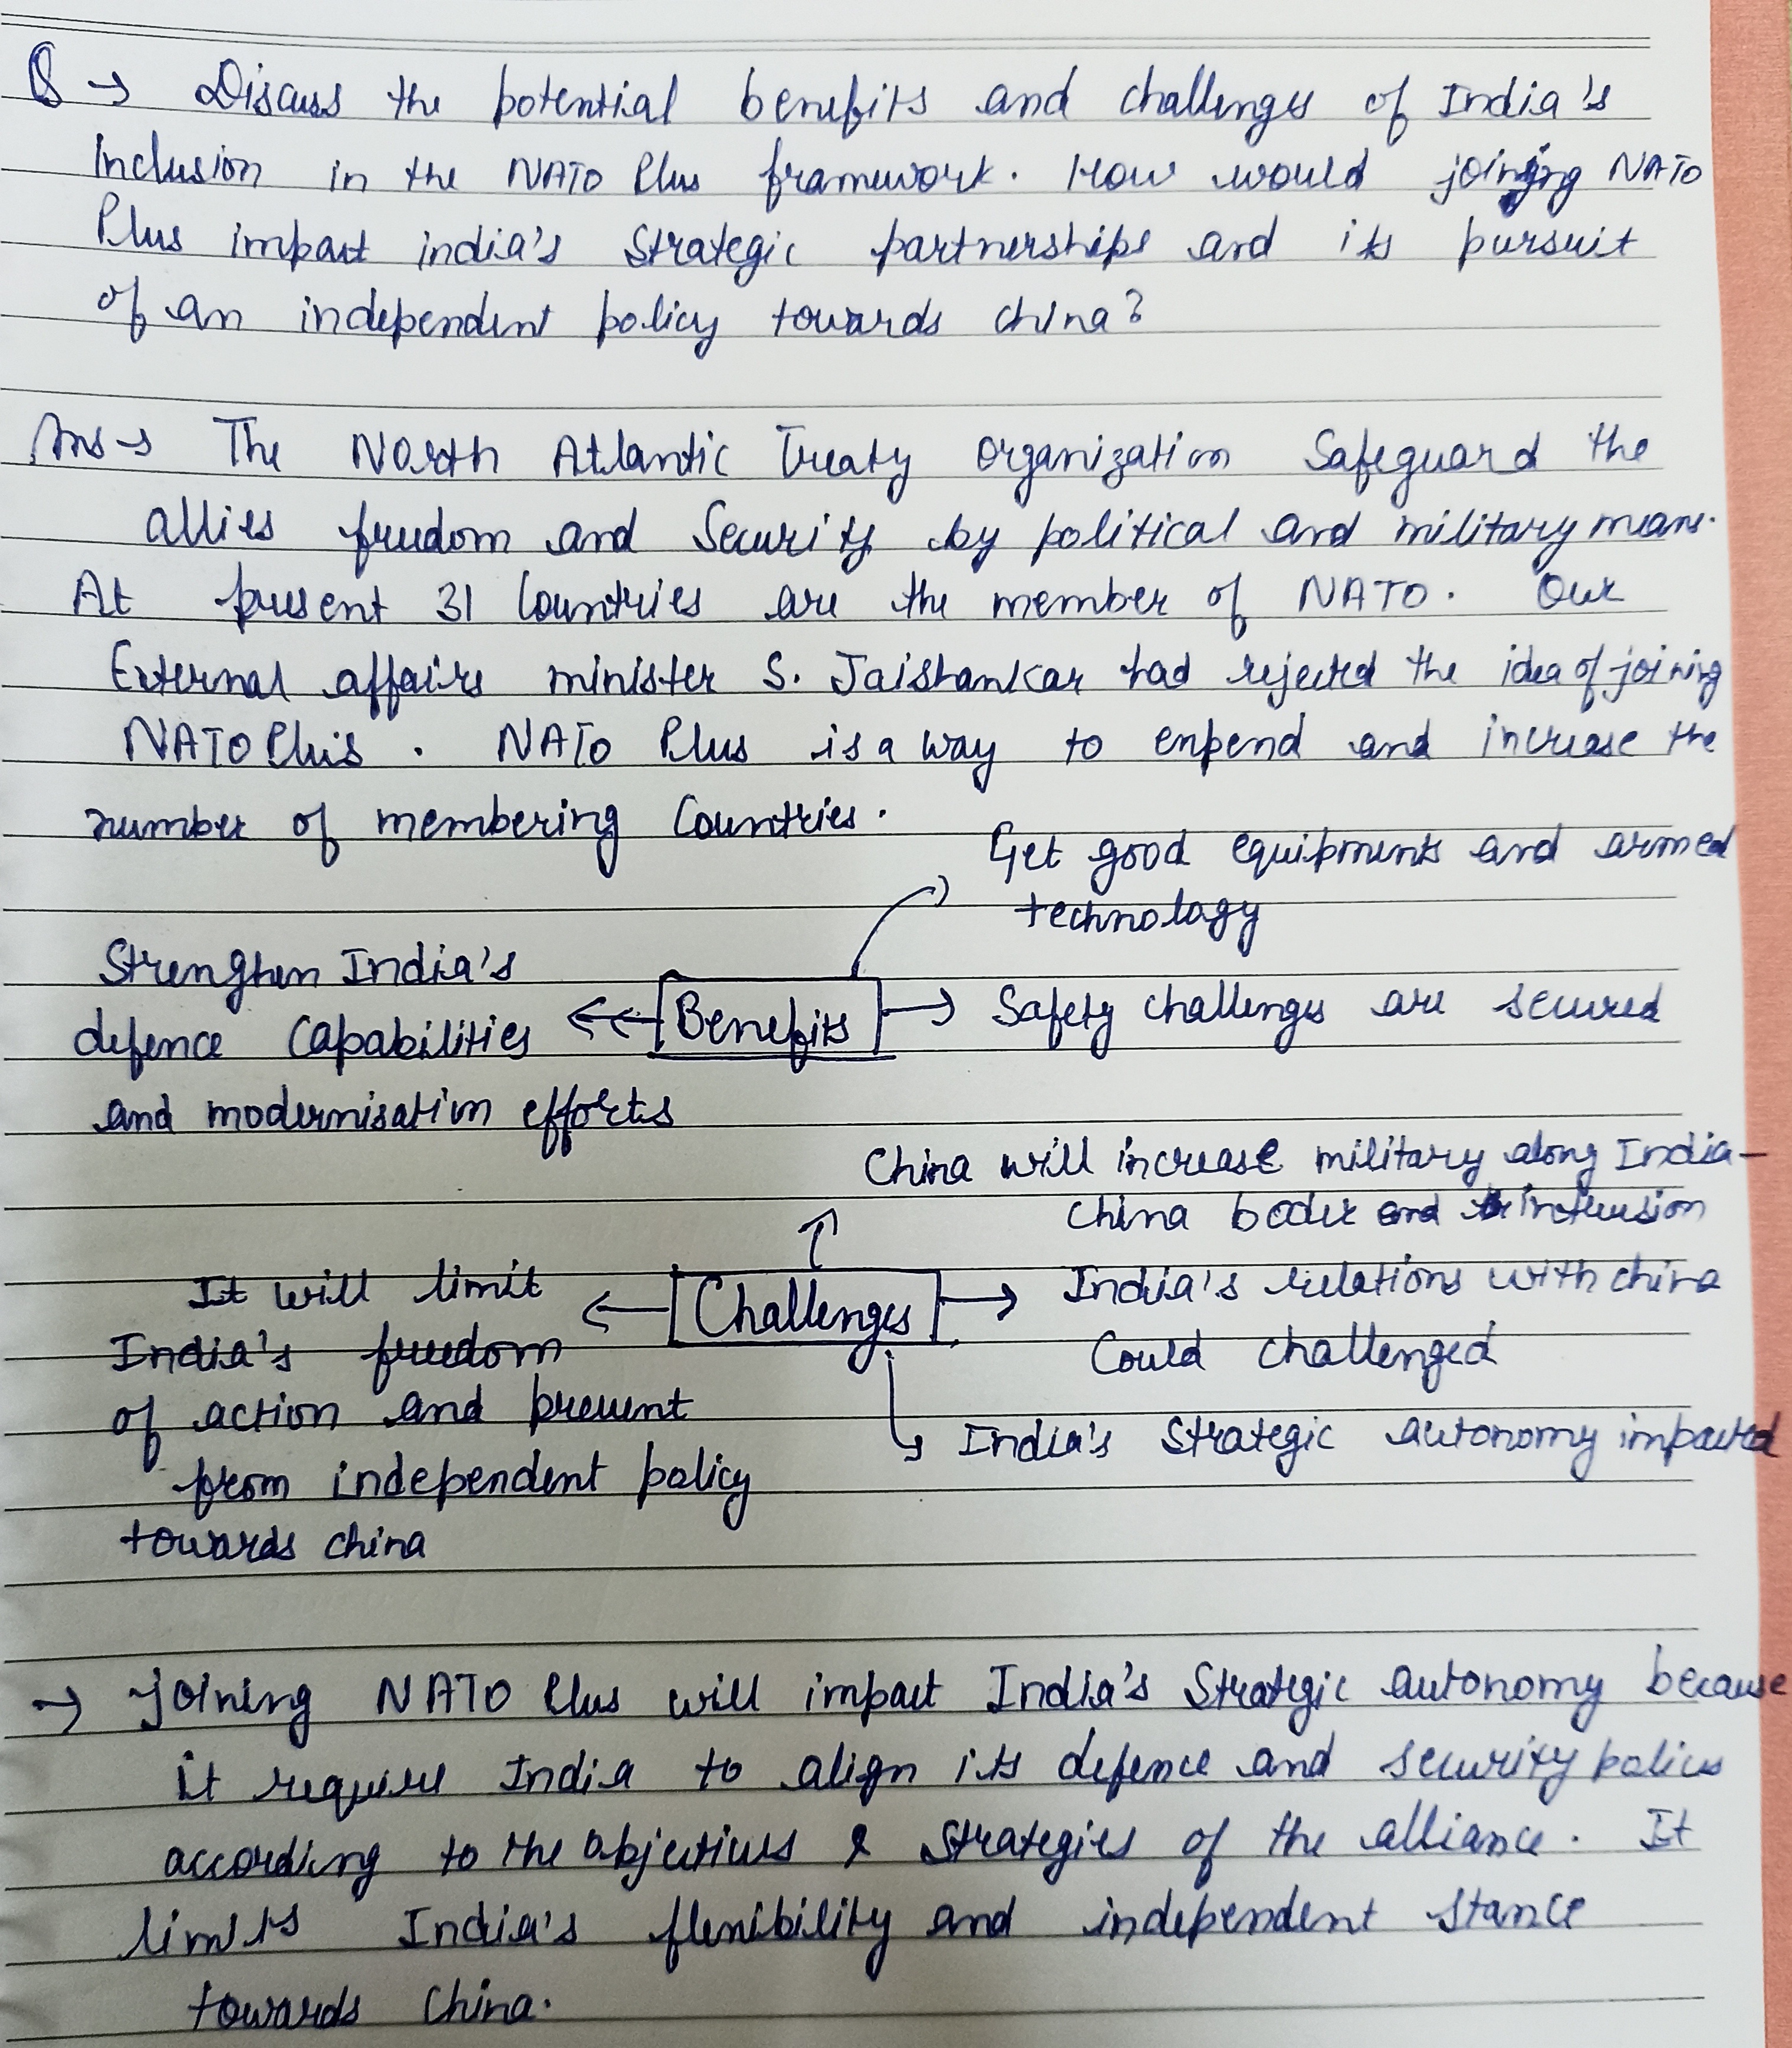 Q → Discuss the potential benefits and challenges of India's
inclusion in the NATO Plus framework. How would joining NATO
Plus impact india's strategic partnerships and its pursuit
of an independent policy towards china?
Ans → The North Atlantic Treaty organization Safeguard the
allies freedom and Security by political and military means.
At present 31 Countries are the member of NATO. Our
External affairs minister S. Jaishankar had rejected the idea of joining
NATO Plus. NATO Plus is a way to expend and increase the
number of membering Countries.
Get good equipments and armed
technology
Strenghen India's
defence Capabilities
and modernisation efforts
Benefits
Safety challenges are secured
China will increase military along India-
China boder and intrusion
It will limit
India's freedom
of action and prevent
from independent policy
towards china
Challenges
India's relations with china
Could challenged
India's Strategic autonomy impacted
→ joining NATO Plus will impact India's Strategic autonomy because
it require India to align its defence and security policies
according to the objectives & Strategies of the alliance. It
limits India's flexibility and independent stance
towards China.